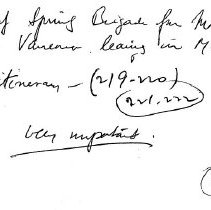 of Spring Brigade for M
leaving in M
itinerary — (219-220)
221.222
very important.